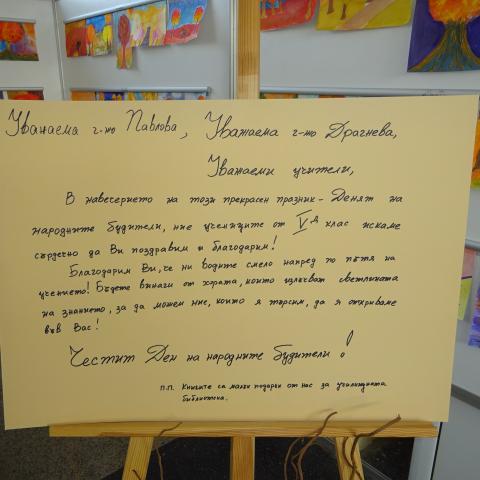 Уважаема г-жо Павлова, Уважаема г-жо Драгнева,
Уважаеми учители,
В навечерието на този прекрасен празник - Денят на
народните будители, ние учениците от V д клас искаме
сърдечно да Ви поздравим и благодарим!
Благодарим Ви, че ни водите смело напред по пътя на
учението! Бъдете винаги от хората, които излъчват светлината
на знанието, за да можем ние, които я търсим, да я откриваме
във Вас!
Честит Ден на народните будители!
П.П. Книгите са малък подарък от нас за училищната
библиотека.